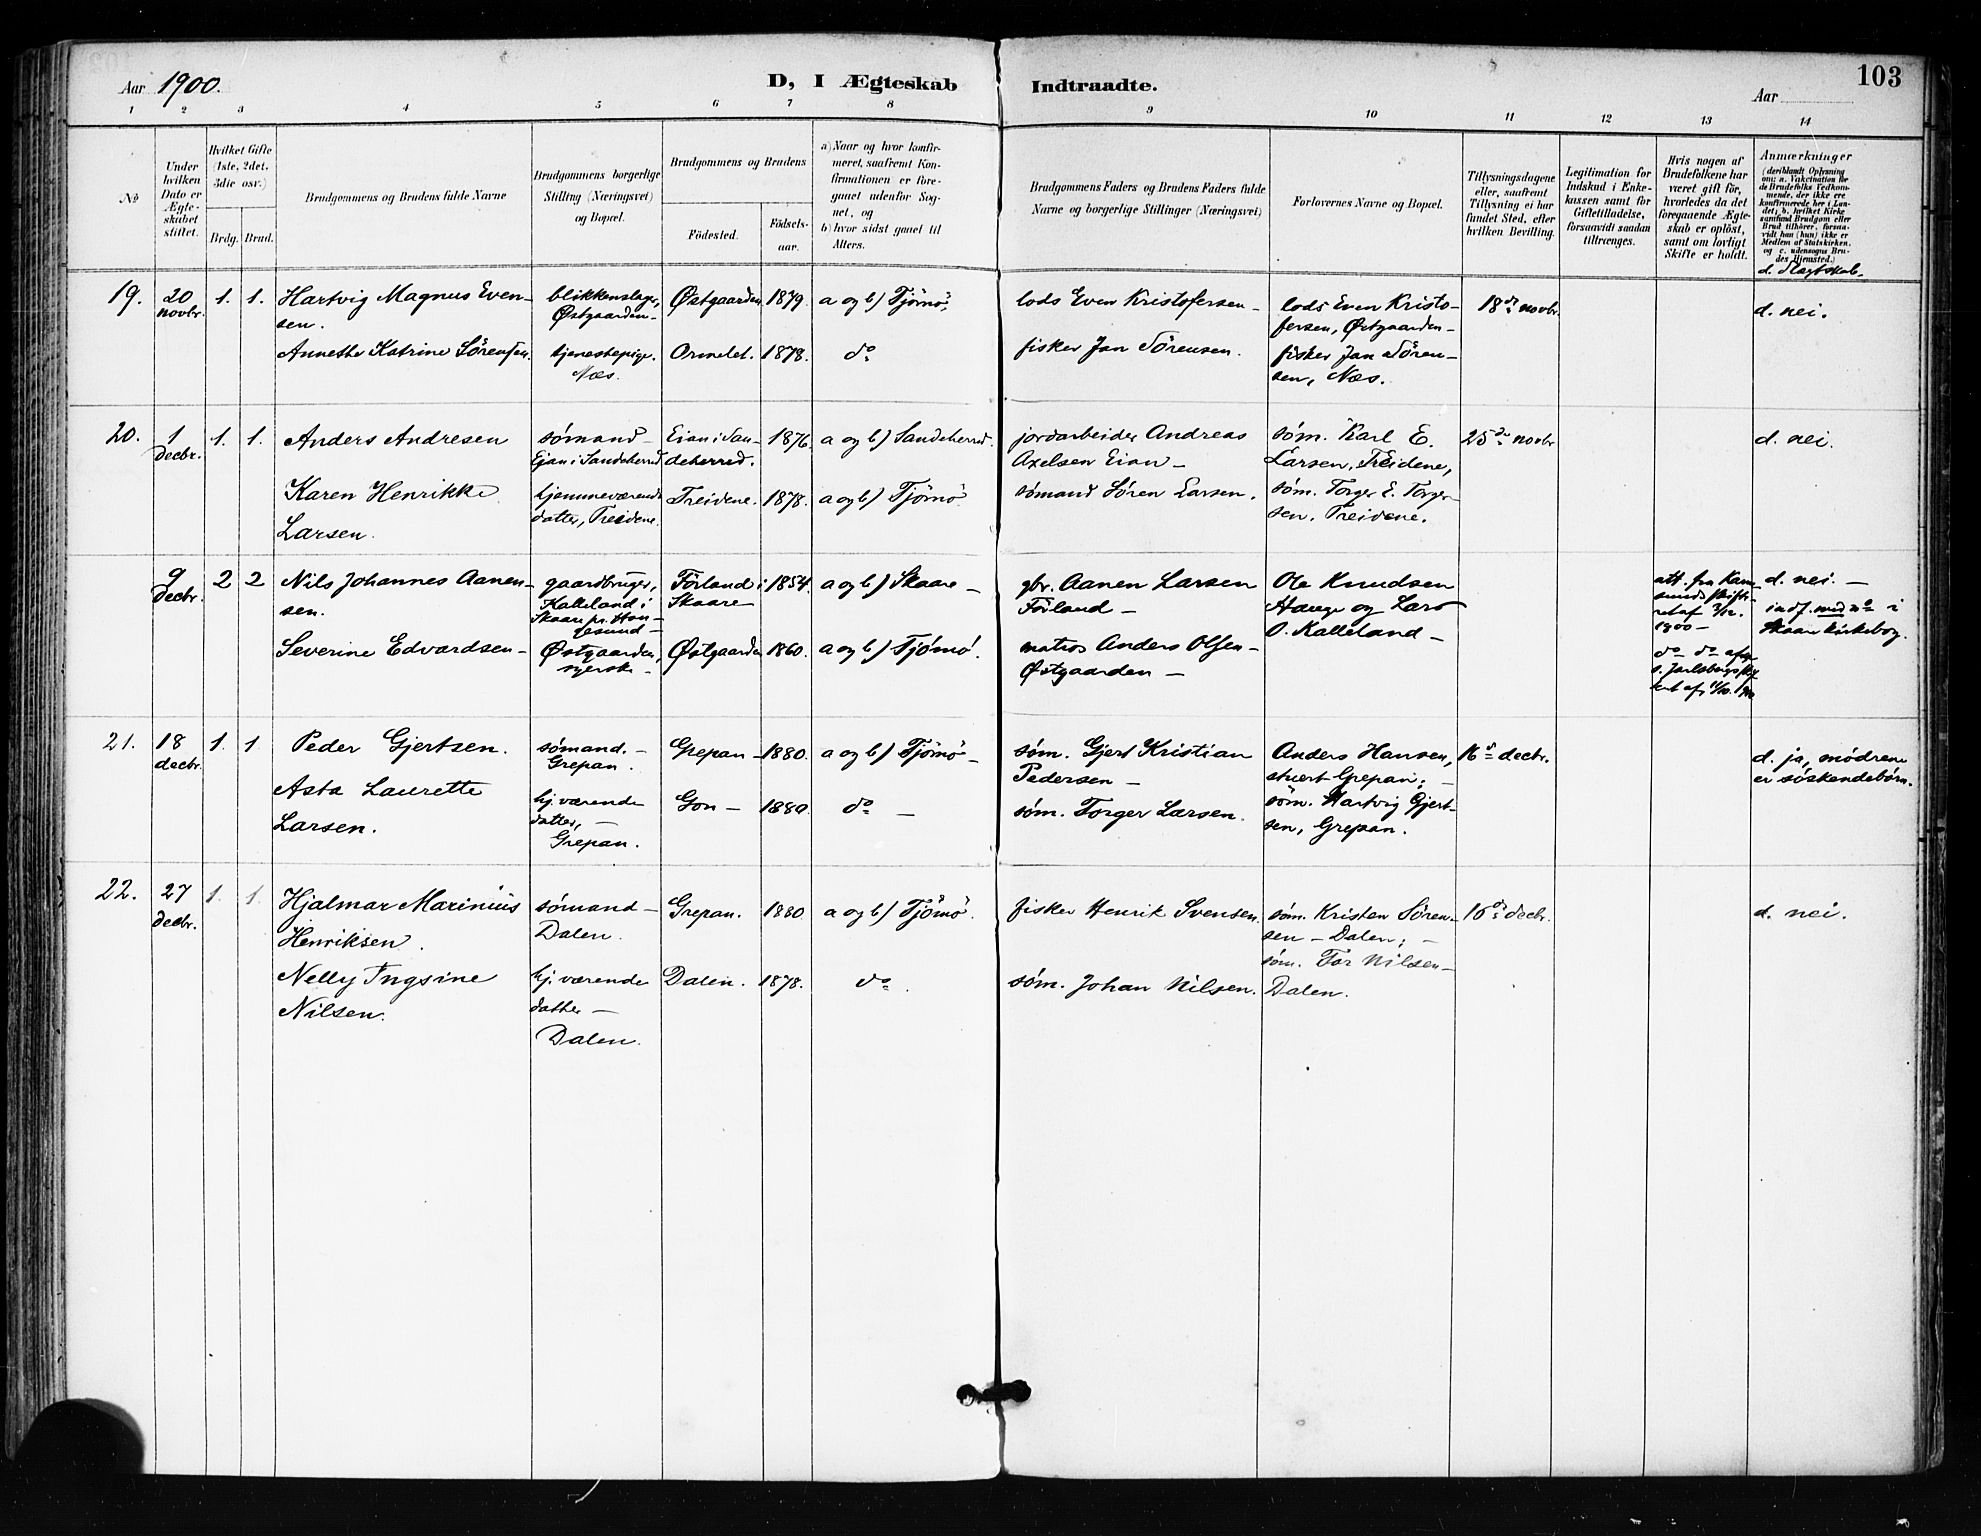 Aar 1900.
D, I Ægteskab Indtraadte.
103
Aar
1 2 3 4 5 6 7 8 9 10 11 12 13 14
No
Under hvilken Dato er Ægteskabet stiftet.
Hvilket Gifte (1ste, 2det, 3die osv.)
Brdg. Brud.
Brudgommens og Brudens fulde Navne
Brudgommens borgerlige Stilling (Næringsvei) og Bopæl.
Brudgommens og Brudens
Födested.
Födsels-aar.
a) Naar og hvor konfir-
meret, saafremt Kon-
firmationen er fore-
gaaet udenfor Sog-
net, og
b) hvor sidst gaaet til
Alters.
Brudgommens Faders og Brudens Faders fulde
Navne og borgerlige Stillinger (Næringsvei)
Forlovernes Navne og Bopæl.
Tillysningsdagene
eller, saafremt
Tillysning ei har
fundet Sted, efter
hvilken Bevilling.
Legitimation for
Indskud i Enke-
kassen samt for
Giftetilladelse,
forsaavidt saadan
tiltrænges.
Hvis nogen af
Brudefolkene har
været gift för,
hvorledes da det
foregaaende Ægte-
skab er oplöst,
samt om lovligt
Skifte er holdt.
Anmærkninger
(deriblandt Oplysning
om: a. Vakcination for
de Brudefolks Vedkom-
mende, der ikke ere
konfirmerede her i Lan-
det; b. hvilket Kirke
samfund Brudgom eller
Brud tilhörer, forsaa-
vidt han (hun) ikke er
Medlem af Statskirken,
og c. udensogns Bru-
des Hjemsted.)
d. Slægtskab.
19. 20 novbr. 1. 1. Hartvig Magnus Even-
sen. blikkenslager, Østgaarden - Østgaarden 1879. a og b) Tjömö. lods Even Kristofersen - lods Even Kristo-
fersen, Østgaarden - 18de novbr. d. nei.
Annethe Katrine Sörensen. tjenestepige. Næs. Ormelet. 1878. do fisker Jan Sörensen. fisker Jan Sören-
sen, Næs.
20. 1 decbr. 1. 1. Anders Andresen sømand - Ejan i Sandeherred Eian i San-
deherred. 1876. a og b) Sandeherred. jordarbeider Andreas
Axelsen Eian - søm. Karl E.
Larsen, Treidene, 25de novbr. d. nei.
Karen Henrikke
Larsen. hjemmeværende
datter, Treidene. Treidene. 1878. a og b) Tjömö. sømand Søren Larsen. søm. Torger E. Torger-
sen. Treidene.
9 decbr. 2 2 Nils Johannes Aanen-
sen. gaardbruger,
Kalleland i
Skaare pr. Hau-
gesund - Förland i
Skaare 1854. a og b) Skaare - gbr. Aanen Larsen
Förland - Ole Knudsen
Hauge og Lars
O. Kalleland - att. fra Karm-
sunds skifte-
ret af
1900 - d. nei. -
indf. med no i
Skaare kirkebog.
Severine Edvardsen - Østgaarden,
syerske - Østgaarden 1860. a og b) Tjømø. matros Anders Olsen -
Østgaarden - do do
s. Jarlsberg
21. 18 decbr. 1. 1. Peder Gjertsen. sømand. -
Grepan. Grepan - 1880. a og b) Tjömö - søm. Gjert Kristian
Pedersen - Anders Hansen,
stuert Grepan; - 16de decbr. d. ja, mødrene
er söskendebörn.
Asta Laurette
Larsen. hj. værende
datter, -
Grepan. Gon - 1880. do - søm. Torger Larsen. søm. Hartvig Gjert-
sen, Grepan.
22. 27 decbr. 1. 1. Hjalmar Marinius
Henriksen. sømand -
Dalen. Grepan. 1880. a og b) Tjömö. fisker Henrik Svensen. søm. Kristen Sören-
sen - Dalen; - 16de decbr. d. nei.
Nelly Ingsine
Nilsen. hj. værende
datter -
Dalen. Dalen. 1878. do. søm. Johan Nilsen. søm. Tor Nilsen -
Dalen.